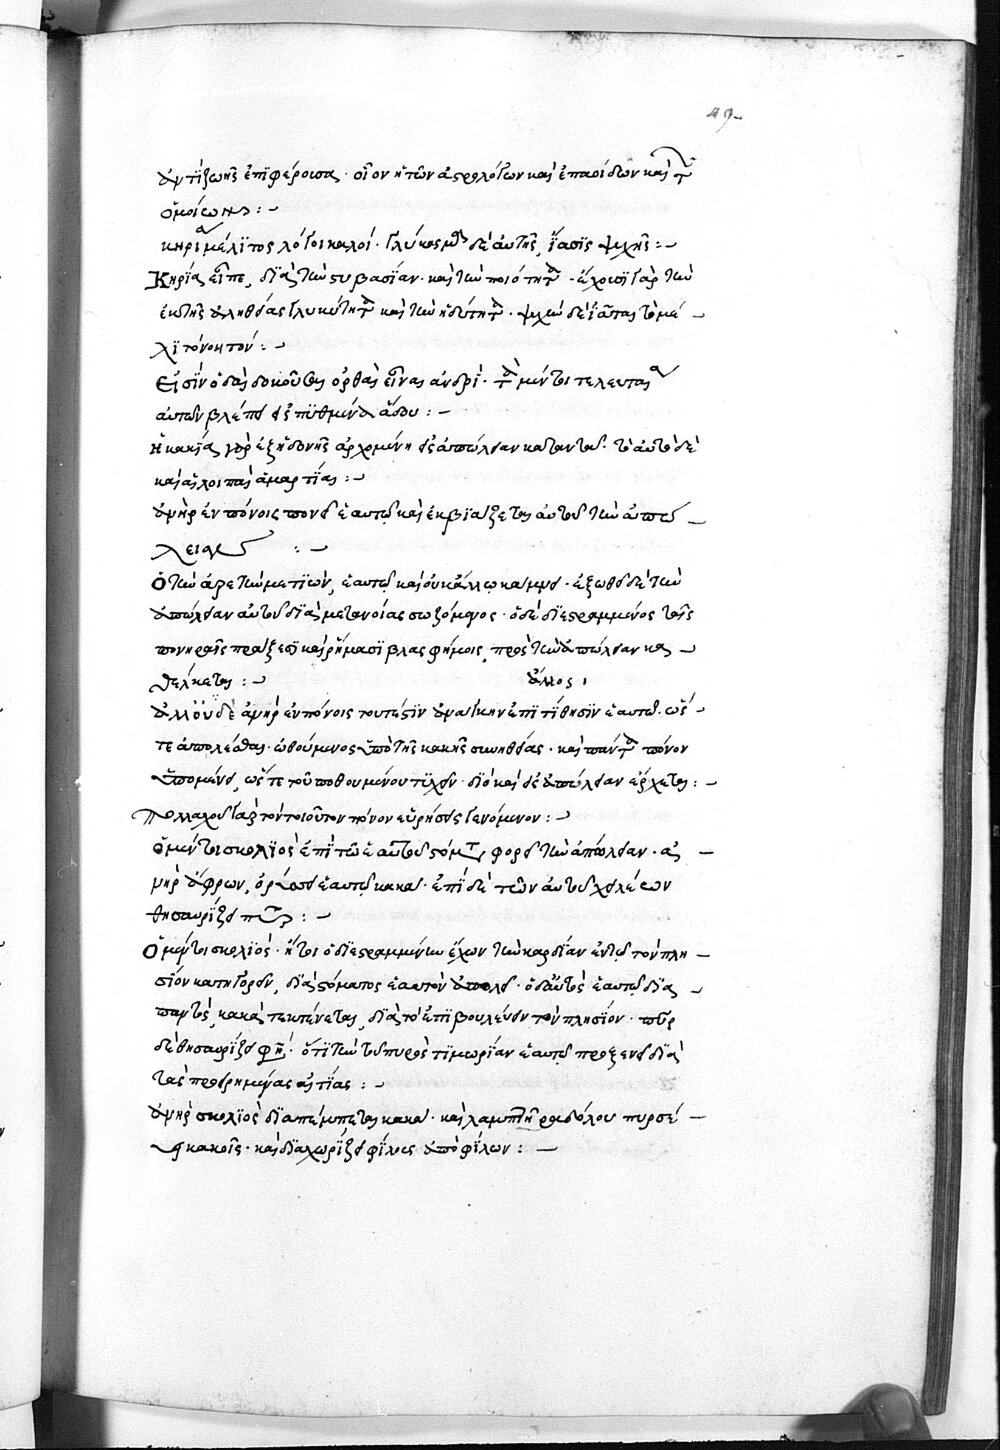 49
ἀντὶ ζωῆς ἐπιφέρουσα· οἷον ἡ τῶν ἀστρολόγων καὶ ἐπαοιδῶν καὶ τῶν
ὁμοίων :–
κηρία μέλιτος λόγοι καλοί· γλύκασμα δὲ αὐτῆς, ἴασις ψυχῆς :–
Κηρία εἶπε, διὰ τὴν συβασίαν· καὶ τὴν ποιότητα· ἔχουσι γὰρ τὴν
ἐκ τῆς ἀληθείας γλυκύτητα καὶ τὴν ἡδύτητα· ψυχὴν δὲ ἰᾶται τὸ μέ–
λι τὸ νοητόν :–
Εἰσὶν ὁδοὶ δοκοῦσαι ὀρθαὶ εἶναι ἀνδρί· τὰ μέντοι τελευταῖα
αὐτῶν βλέπει εἰς πυθμένα ᾅδου :–
Ἡ κακία γὰρ ἐξ ἡδονῆς ἀρχομένη εἰς ἀπώλειαν καταντᾷ· τὸ αὐτὸ δὲ
καὶ αἱ λοιπαὶ ἁμαρτίαι :–
ἀνὴρ ἐν πόνοις πονεῖ ἑαυτῷ καὶ ἐκβιάζεται αὐτοῦ τὴν ἀπώ–
λειαν :–
Ὁ τὴν ἀρετὴν μετιὼν, ἑαυτῷ καὶ οὐκ ἄλλῳ κάμνει· ἐξωθεῖ δὲ τὴν
ἀπώλειαν αὐτοῦ διὰ μετανοίας σωζόμενος· ὁ δὲ διεστραμμένος ταῖς
πονηραῖς πράξεσι καὶ ῥήμασι βλασφήμοις, πρὸς τὴν ἀπώλειαν κα–
θέλκεται :– ἄλλος
ἀλλ' οὐδὲ ἀνὴρ ἐν πόνοις τουτέστιν ἀνάγκην ἐπιτίθησιν ἑαυτῷ ὥσ–
τε ἀπολέσθαι· ὠθούμενος ὑπὸ τῆς κακῆς συνηθείας· καὶ πάντα πόνον
ὑπομένει, ὥστε τοῦ ποθουμένου τυχεῖν· διὸ καὶ εἰς ἀπώλειαν ἔρχεται :–
Πολλαχοῦ γὰρ τὸν τοιοῦτον πόνον εὑρήσεις γενόμενον :–
Ὁ μέντοι σκολιὸς ἐπὶ τῷ ἑαυτοῦ στόματι φορεῖ τὴν ἀπώλειαν· ἀ–
νὴρ ἄφρων, ὀρύσσει ἑαυτῷ κακά· ἐπὶ δὲ τῶν αὐτοῦ χειλέων
θησαυρίζει πῦρ :–
Ὁ μέντοι σκολιὸς· ἤτοι ὁ διεστραμμένην ἔχων τὴν καρδίαν ἐν τῷ τὸν πλη–
σίον κατηγορεῖν, διὰ στόματος ἑαυτὸν ἀπολεῖ· ὁ δ' αὐτὸς ἑαυτῷ δια–
παντὸς, κακὰ τεκταίνεται, διὰ τὸ ἐπιβουλεύειν τὸν πλησίον· πῦρ
δὲ θησαυρίζει φησὶν· ὅτι τὴν τοῦ πυρὸς τιμωρίαν ἑαυτῷ προξενεῖ διὰ
τὰς προειρημένας αἰτίας :–
ἀνὴρ σκολιὸς διαπέμπεται κακά· καὶ λαμπτῆρα δόλου πυρσεύ–
ει κακοῖς· καὶ διαχωρίζει φίλους ἀπὸ φίλων :–